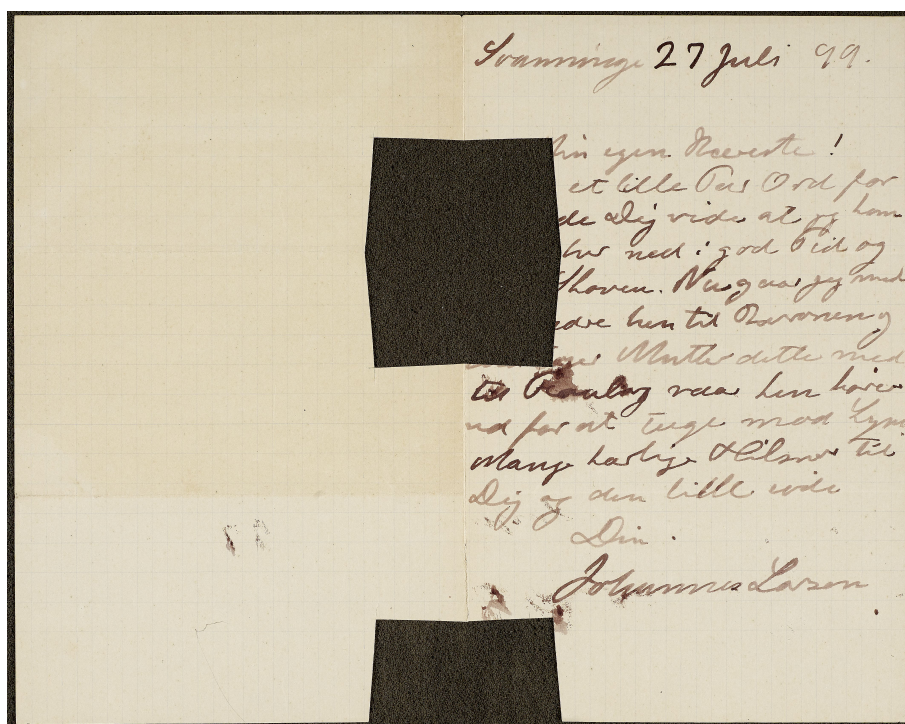 Svanninge 27 Juli 99.
in egen Kæreste!
et lille Par Ord for
de Dig vide at jeg kom
her ned i god Tid og
haven. Nu gaar jeg med
edre hen til Baronen og
Mutter dette med
til Faaborg naar hen kører
ud for at tage mod Lysse
Mange kærlige Hilsner til
Dig og den lille inde
Din
Johannes Larsen